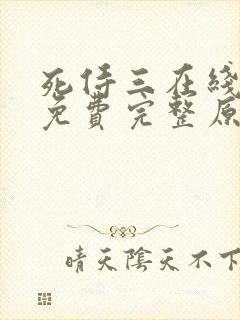 死侍三在綫
免費完整原
晴天陰天不下